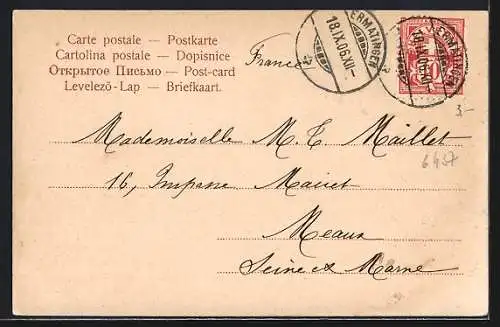 Carte postale — Postkarte
Cartolina postale — Dopisnice
Открытое Письмо — Post-card
Levelező-Lap — Briefkaart.
France
ERMATINGEN
18.IX.06.XII-
ERMATINGEN
Mademoiselle M. T. Maillet
16, Impasse Mairet
Meaux
Seine et Marne
3-
6457